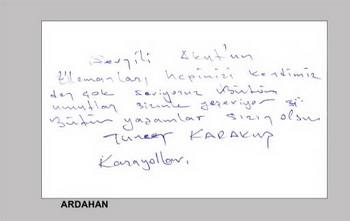 Sevgili Akut'un
Elemanları, hepinizi kendimiz
den çok seviyoruz Bütün
umutlar sizinle yeşeriyor
Bütün yaşamlar sizin olsun
Tuncer KARAKUŞ
Karayolları
ARDAHAN